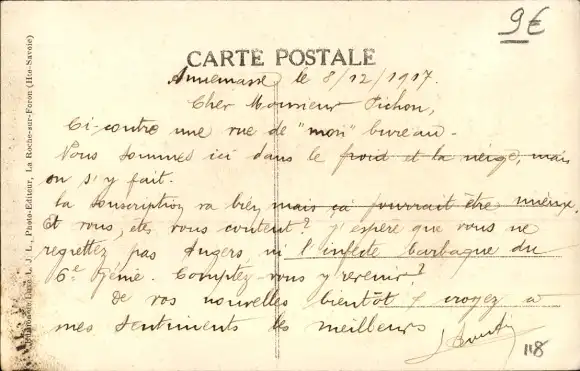 9€
CARTE POSTALE
Annemasse, le 8/12/1917.
Cher Monsieur Pichon,
Ci-contre une vue de "mon" bureau.
Nous sommes ici dans le froid et la neige, mais
on s'y fait.
La souscription va bien, mais ça pourrait être mieux.
Et vous, êtes vous content? J'espère que vous ne
regrettez pas Angers ni l'infecte barbaque du
6e Génie. Comptez-vous y revenir?
De vos nouvelles bientôt & croyez à
mes sentiments les meilleurs
118
L. J. L., Photo-Editeur, La Roche-sur-Foron (Hte-Savoie)